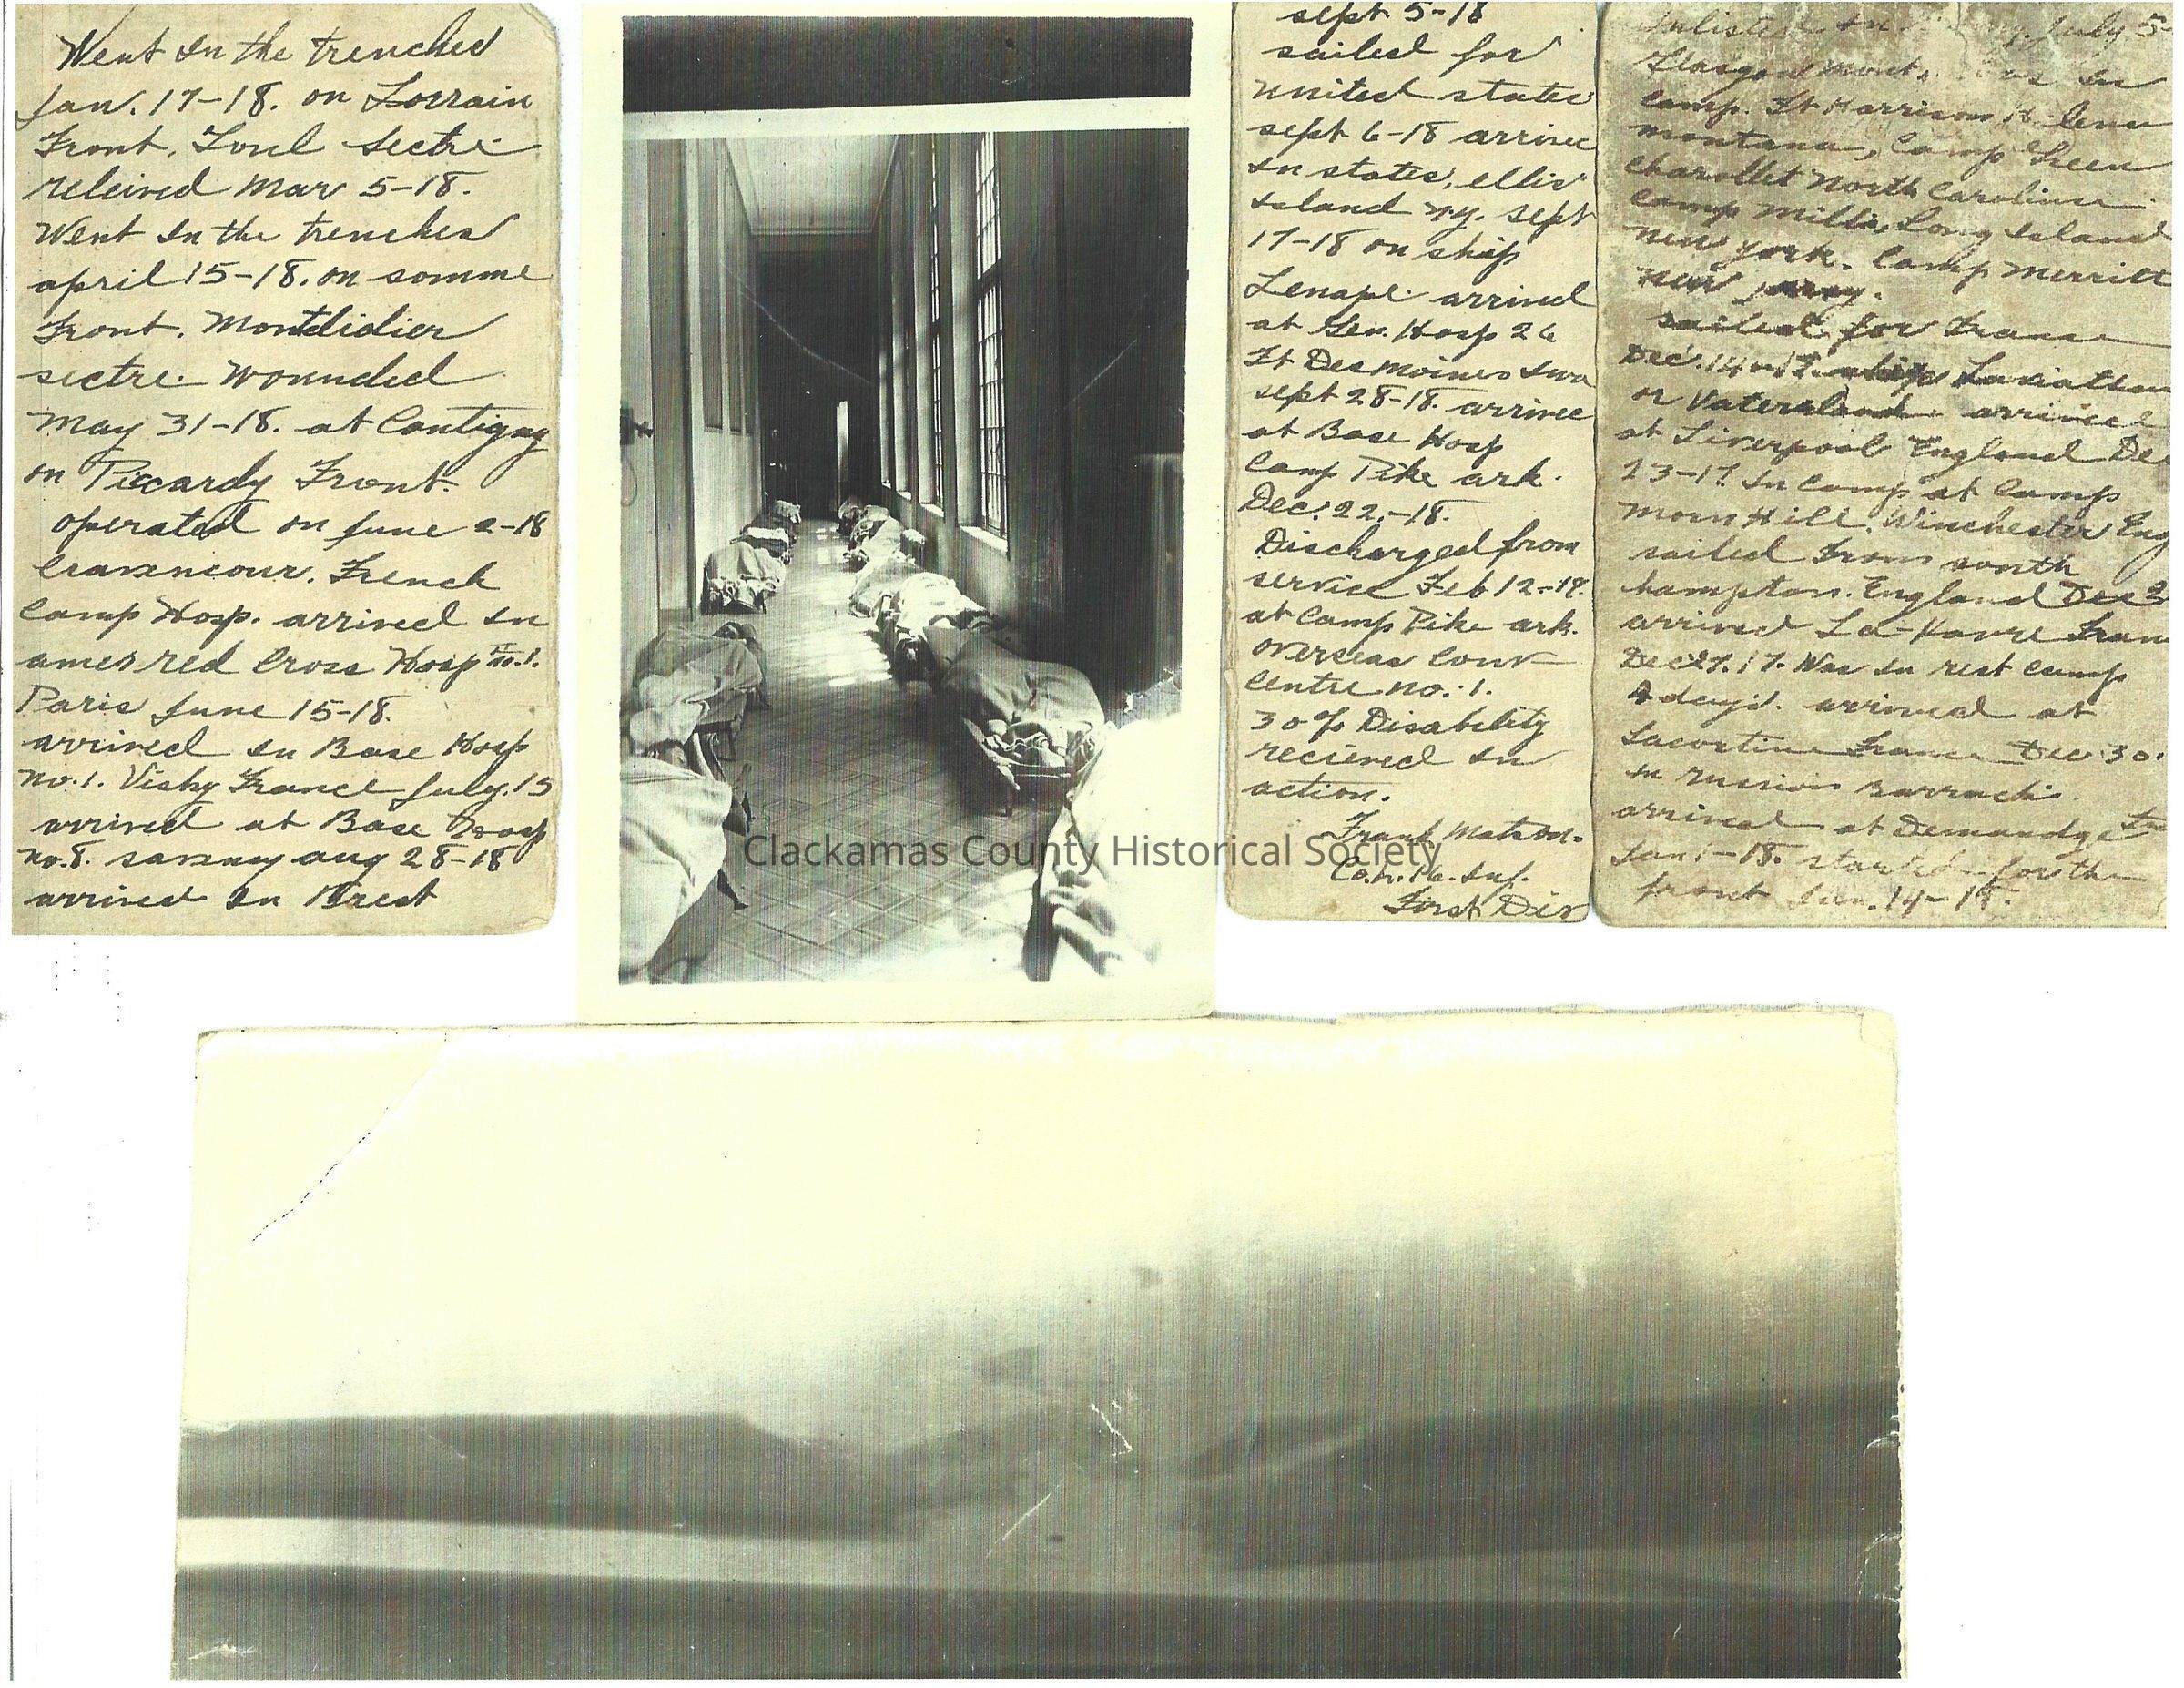 Went In the trenches
Jan. 17-18. on Lorrain
Front. Toul Sectre
releived Mar 5-18.
Went In the trenches
april 15-18. on somme
Front. Montdidier
sectre. Wounded
May 31-18. at Cantigny
on Piccardy Front.
operated on June 2-18
French
Camp Hosp. arrived In
amer red Cross Hosp no.1.
Paris June 15-18.
arrived In Base Hosp
no.1. Vishy France July.15
arrived at Base Hosp
no.8. savanay aug 28-18
arrived In Brest
sept 5-18
sailed for
united states
sept 6-18 arrived
In states, ellis
Island n.y. sept
17-18 on ship
Lenape. arrived
at Gen. Hosp 26
Ft Des Moines Iwa
sept 28-18. arrived
at Base Hosp
Camp Pike ark.
Dec. 22.-18.
Discharged from
service Feb 12-19.
at Camp Pike ark.
overseas Conv
Centre no. 1.
30% Disability
recieved In
action.
Frank Matson.
Co. 16. Inf.
First Div
Inlisted In July 5-
Glasgow Mont. In
Camp. Ft Harrison Helena
Montana, Camp Green
Charollet North Carolina
Camp Mills, Long Island
New York. Camp Merritt
New Jersey.
sailed for France
Dec. 14-17. ship Laviathan
or Vaterland arrived
at Liverpool England Dec
23-17. In Camp at Camp
Morn Hill. Winchester Eng
sailed From south
hampton. England Dec 2
arrived La-Havre Fran
Dec 27. 17. Was In rest camp
4 days. arrived at
France Dec. 30.
In Russian Barracks.
arrived at Demandge
Jan 1-18. started for the
front Jan. 14-18.
Clackamas County Historical Society